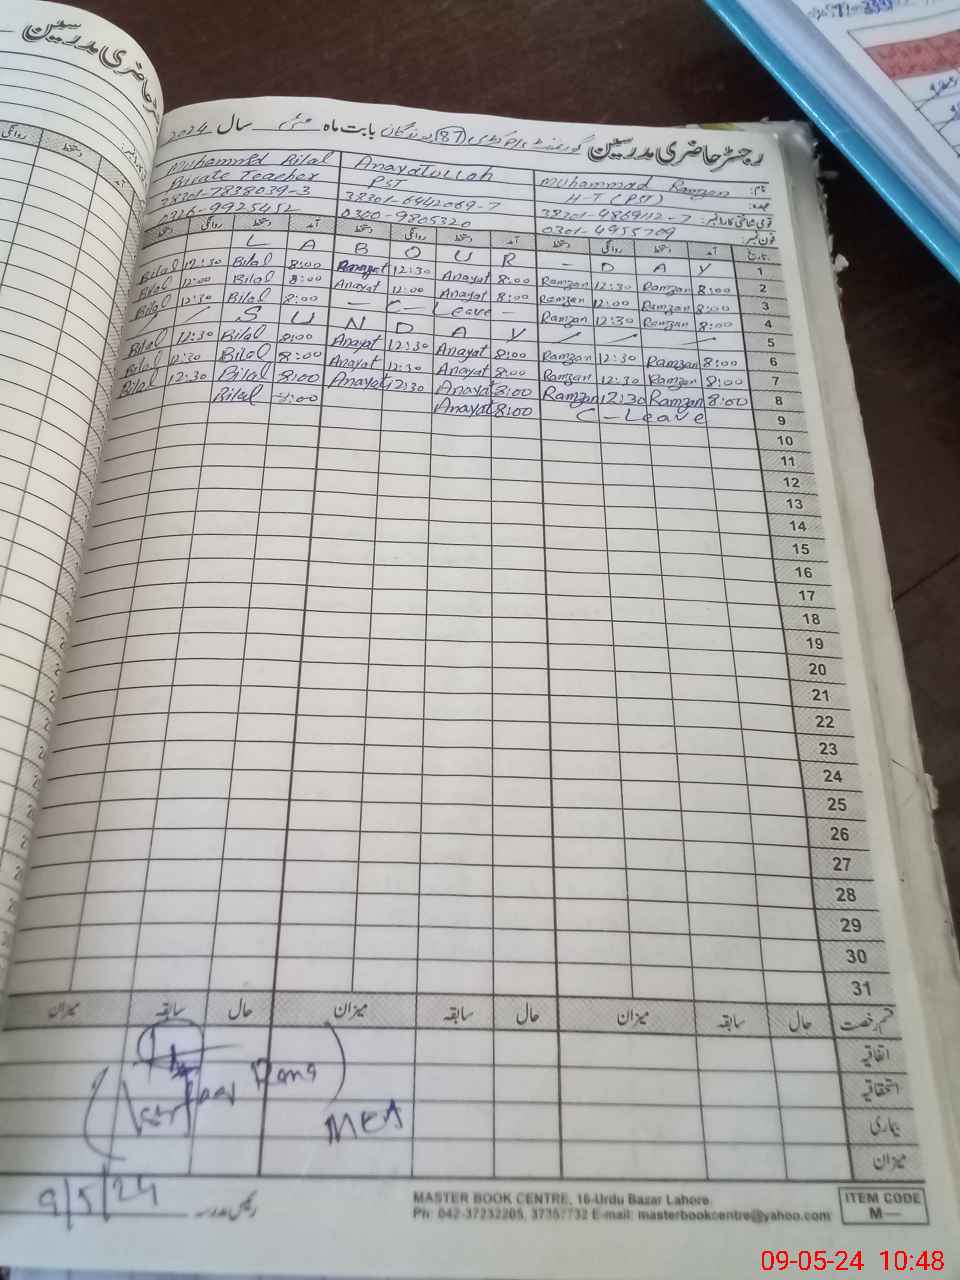 رجسٹر حاضری مدرسین
(87) بابت ماہ مئی سال 2024
نام: Muhammad Ramzan Anayatullah Muhammad Bilal
عہدہ: H-T (PST) PST Private Teacher
قومی شناختی کارڈ نمبر: 38301-6442069-7 38301-7838039-3
فون نمبر: 0301-4955709 0300-9805320 0316-9925452
تاریخ آمد دستخط روانگی دستخط آمد دستخط روانگی دستخط آمد دستخط روانگی دستخط
1 L A B O U R - D A Y
2 Bilal 12:30 Bilal 8:00 Anayat 12:30 Anayat 8:00 Ramzan 12:30 Ramzan 8:00
3 Bilal 12:00 Bilal 8:00 Anayat 12:00 Anayat 8:00 Ramzan 12:00 Ramzan 8:00
4 Bilal 12:30 Bilal 8:00 - C - Leave - Ramzan 12:30 Ramzan 8:00
5 S U N D A Y
6 Bilal 12:30 Bilal 8:00 Anayat 12:30 Anayat 8:00 Ramzan 12:30 Ramzan 8:00
7 Bilal 12:30 Bilal 8:00 Anayat 12:30 Anayat 8:00 Ramzan 12:30 Ramzan 8:00
8 Bilal 12:30 Bilal 8:00 Anayat 12:30 Anayat 8:00 Ramzan 12:30 Ramzan 8:00
9 Bilal Anayat 8:00 C - Leave
10
11
12
13
14
15
16
17
18
19
20
21
22
23
24
25
26
27
28
29
30
31
قسم رخصت حال سابقہ میزان حال سابقہ میزان حال سابقہ میزان
اتفاقیہ
استحقاقیہ
بیماری
میزان
MEA
9/5/24
رئیس مدرسہ
MASTER BOOK CENTRE, 16-Urdu Bazar Lahore.
Ph: 042-37232205, 37357732 E-mail: masterbookcentre@yahoo.com
ITEM CODE
M—
09-05-24 10:48